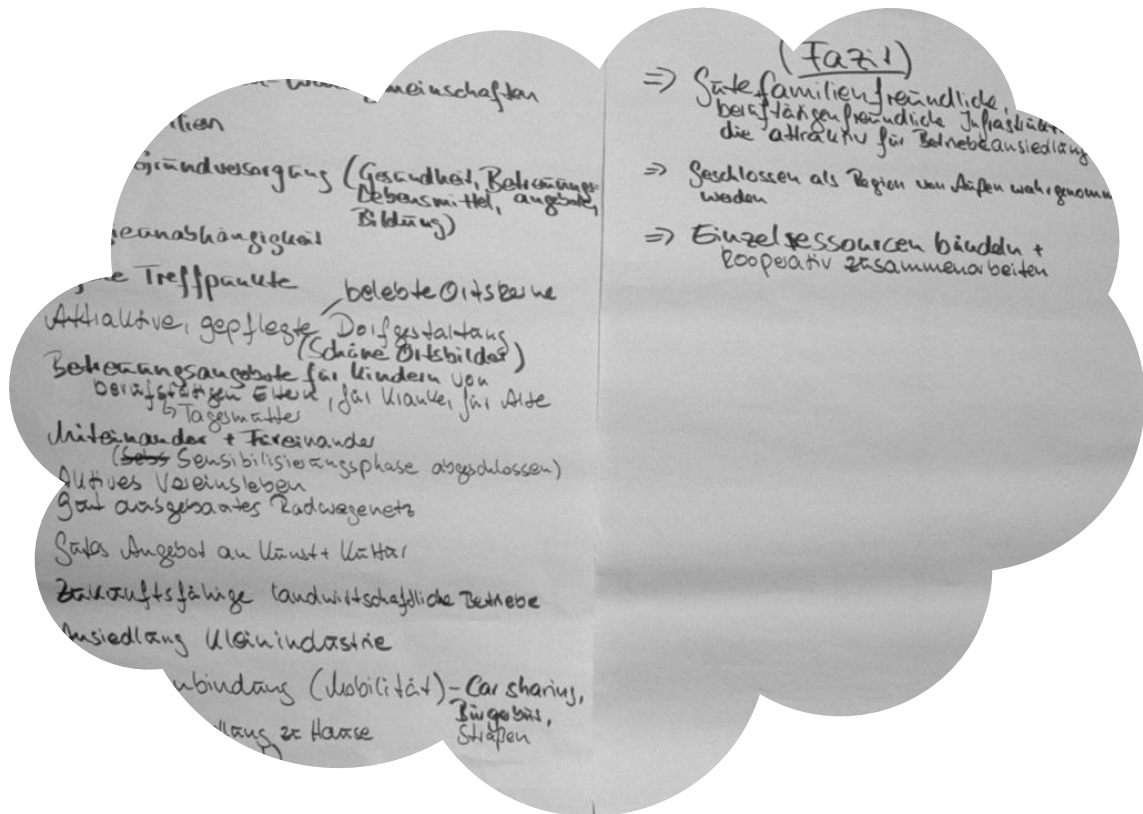 meinschaften
ilien
Grundversorgung (Gesundheit, Betreuungs-
Lebensmittel, angebote,
Bildung)
eunabhängigkeit
Treffpunkte
belebte Ortskerne
Attraktive, gepflegte Dorfgestaltung
(Schöne Ortsbilder)
Betreuungsangebote für Kindern von
berufstätigen Eltern, für Kranke, für Alte
↳ Tagesmütter
Miteinander + Füreinander
(Sensibilisierungsphase abgeschlossen)
Aktives Vereinsleben
gut ausgebautes Radwegenetz
Gutes Angebot an Kunst + Kultur
Zukunftsfähige landwirtschaftliche Betriebe
Ansiedlung Kleinindustrie
nbindung (Mobilität) - Car sharing,
Bürgerbus,
Straßen
llung zu Hause
(Fazit)
=> Gute familienfreundliche,
berufstätigenfreundliche Infrastruktur
die attraktiv für Betriebeansiedlung
=> Geschlossen als Region von Außen wahrgenomm
werden
=> Einzelressourcen bündeln +
kooperativ zusammenarbeiten